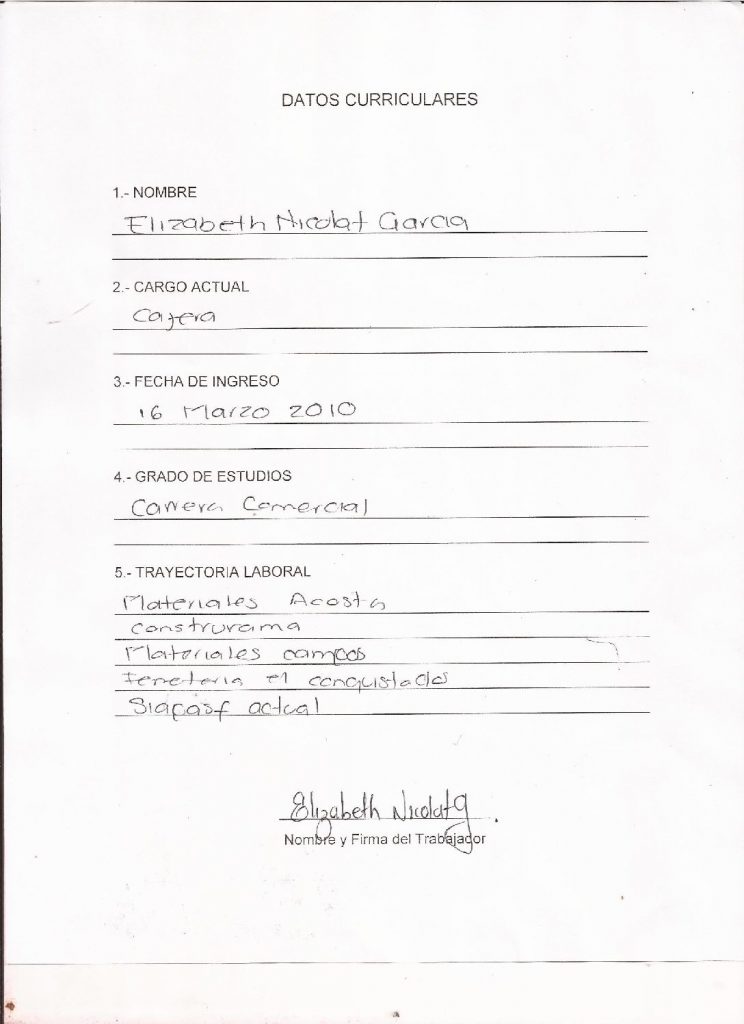 DATOS CURRICULARES
1.- NOMBRE
Elizabeth Nicolat Garcia
2.- CARGO ACTUAL
Cajera
3.- FECHA DE INGRESO
16 Marzo 2010
4.- GRADO DE ESTUDIOS
Carrera Comercial
5.- TRAYECTORIA LABORAL
Materiales Acosta
construrama
Materiales campos
ferreteria el conquistador
Siapasf actual
Elizabeth Nicolat g.
Nombre y Firma del Trabajador